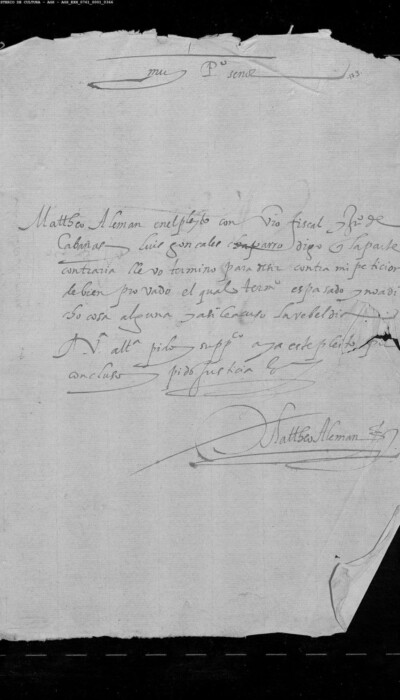 MINISTERIO DE CULTURA - AGS - AGS_EMR_0761_0001_0366
muy Pº senor
Mattheo Aleman enelpleyto con Vro fiscal y Juº de
Cabañas y luis gonzales chaparro digo q laparte
contraria llevo termino para dezir contra mi peticion
de bien provado el qual termº espasado y noadi
cho cosa alguna y asi leacuso larebeldia
A Vª altª pido y suppco aya este pleyto por
concluso y pido justicia
Mattheo Aleman